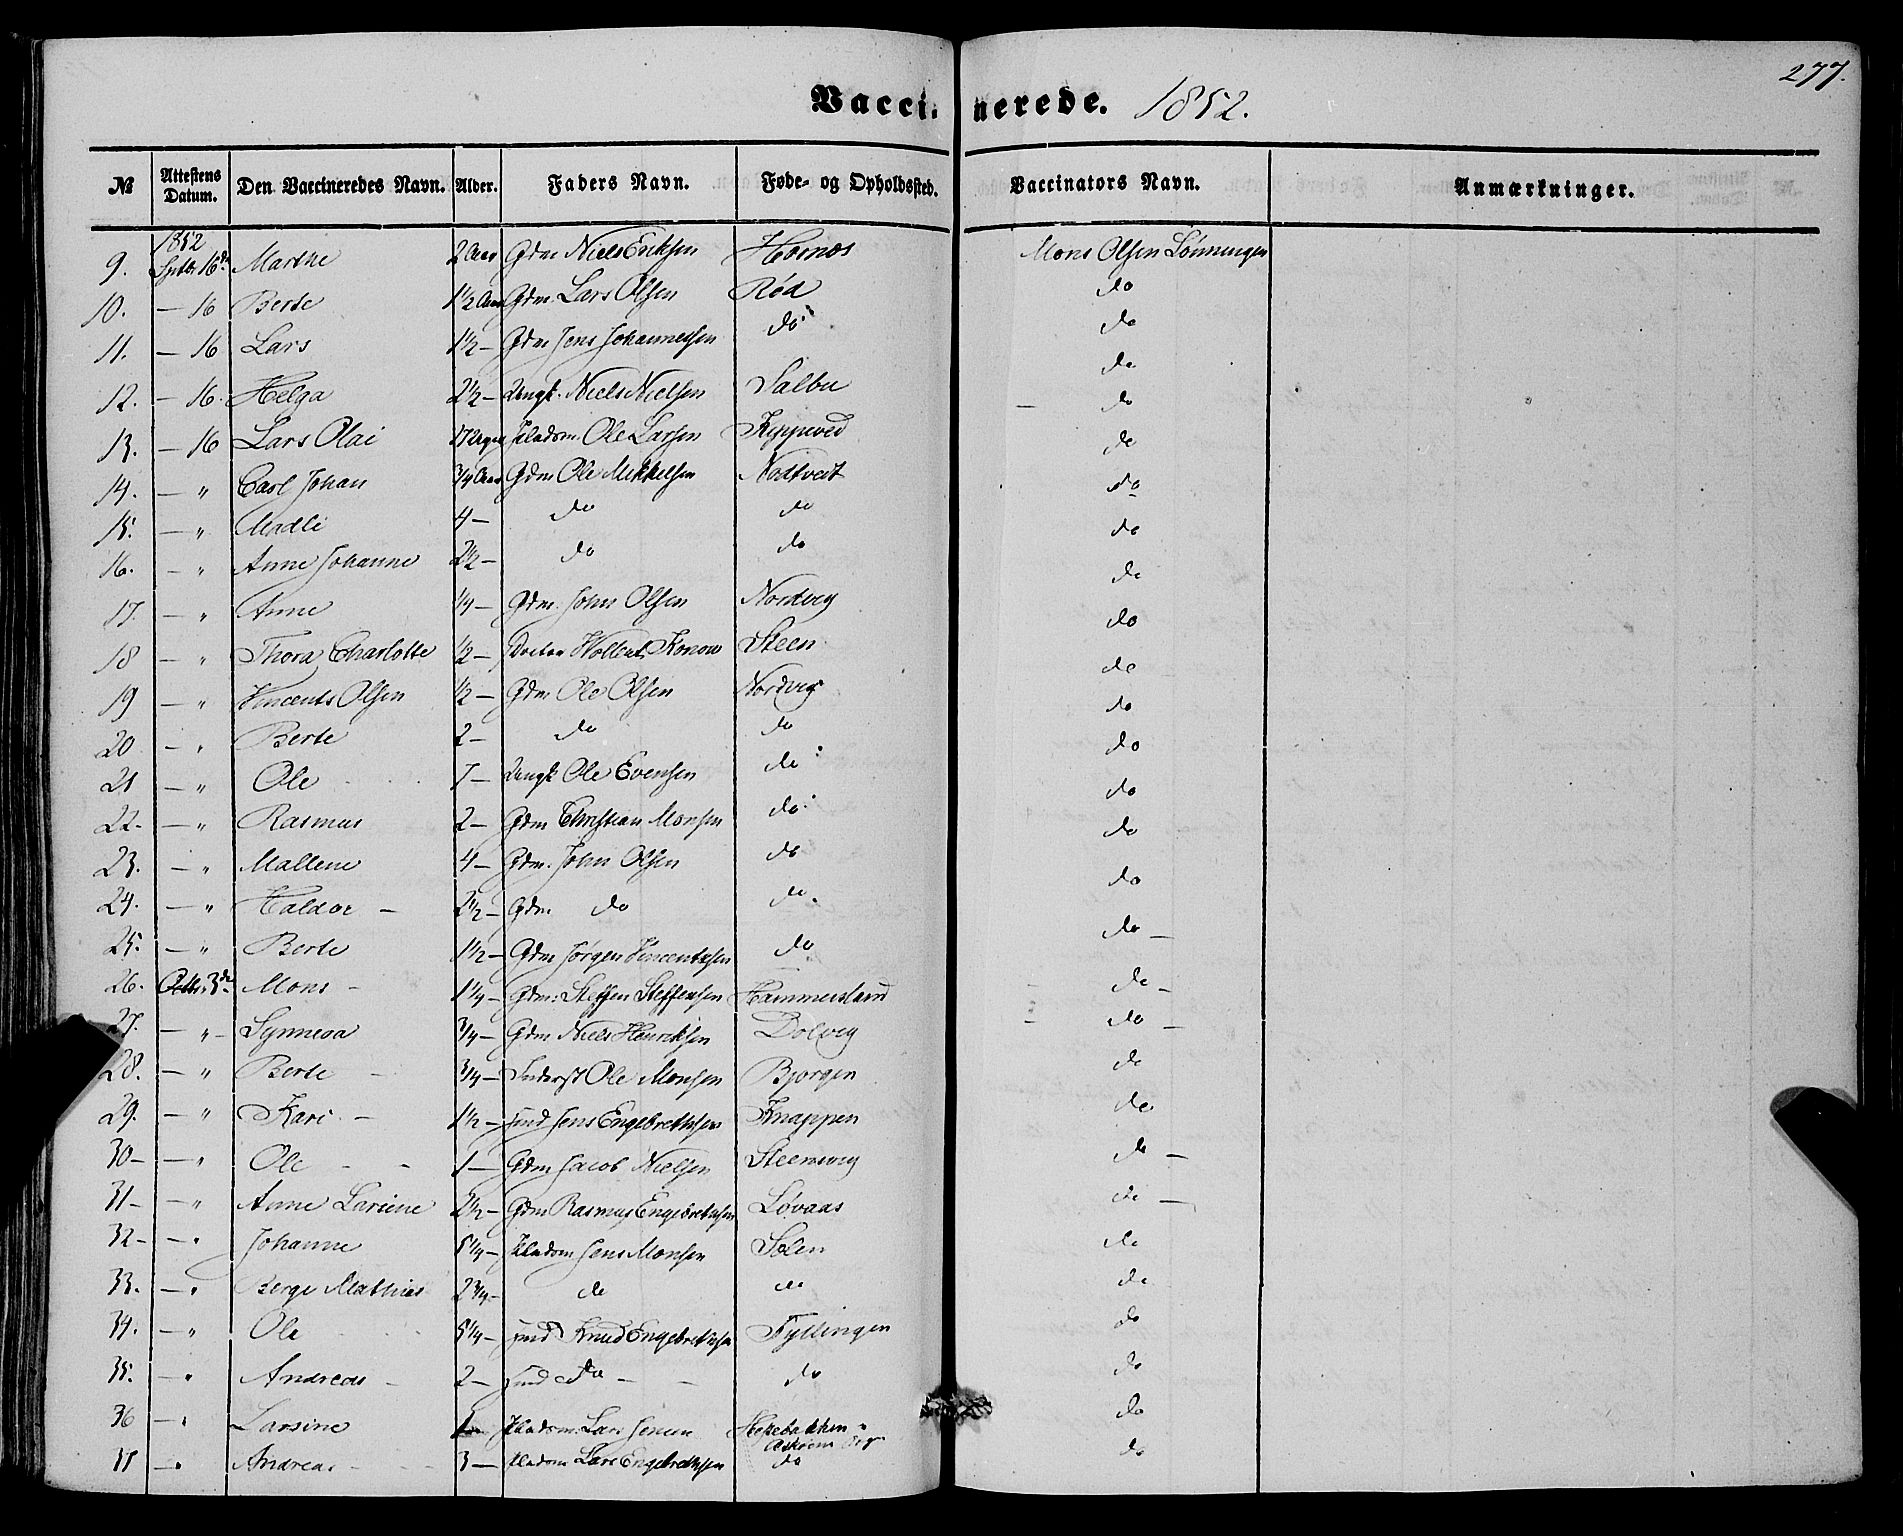 277.
Vaccinerede. 1852.
№ Attestens Datum. Den Vaccineredes Navn. Alder. Faders Navn. Føde- og Opholdssted. Vaccinators Navn. Anmærkninger.
1852
9. Septbr 16de Marthe 2 Aar Gdm Niels Eriksen Hornes Mons Olsen Lønningen
10. — 16 Berte 1½ Aar Gdm. Lars Olsen Rød do
11. — 16 Lars 1½ — Gdm Jens Johannessen do do
12. — 16. Helga 2½ — Niels Nielsen Salbu do
13. — 16 Lars Olai Pladsm. Ole Larsen do
14. — " Carl Johan ¾ Aar Gdm Ole Mikkelsen Nodtvedt do
15. — " Madli 4 — do do do
16. — " Anne Johanne 2½ — do do do
17. — " Anne ¼ — Gdm. John Olsen Nordvig do
18 — " Thora Charlotte ½ — Doctor Wollert Konow Steen do
19 — " Vincents Olsen ½ — Gdm Ole Olsen Nordvig do
20 — " Berte 2 — do do do
21 — " Ole 7 — Ole Evensen do do
22 — " Rasmus 2 — Gdm Christian Monsen do do
23. — " Mallene 4 — Gdm. John Olsen do do
24. — " Haldor — 2½ — Gdm do do do
25. — " Berte 1½ — Gdm Jørgen Vincentsen do do —
26. Octbr. 3de Mons — 1¼ — Gdm: Steffen Steffensen Hammersland do —
27. — " — Synneva ¾ — Gdm Niels Henriksen Dolvig do —
28. — " Berte — ¾ — Inderst Ole Monsen Bjorgen do
29. — " Kari — 1½ — Jens Engebrethsen Knappen do
30 — — " Ole — — 1 — Gdm Jacob Nielsen Steensvig do —
31 — — " Anne Larine 2½ — Gdm Rasmus Engebrethsen Løvaas do —
32 — — " Johanne 5¼ — Pladsm Jens Monsen Solen do
33. — " Berge Mathias 2¾ — do do do
34. — " Ole 5¼ — Knud Engebrethsen Tyllingen do
35. — " Andreas — 2 — do — do do
36 — " Larsine 1 — Pladsm: Lars Jensen do
37 — " Andreas — 3 — Pladsm Lars Engebrethsen do do